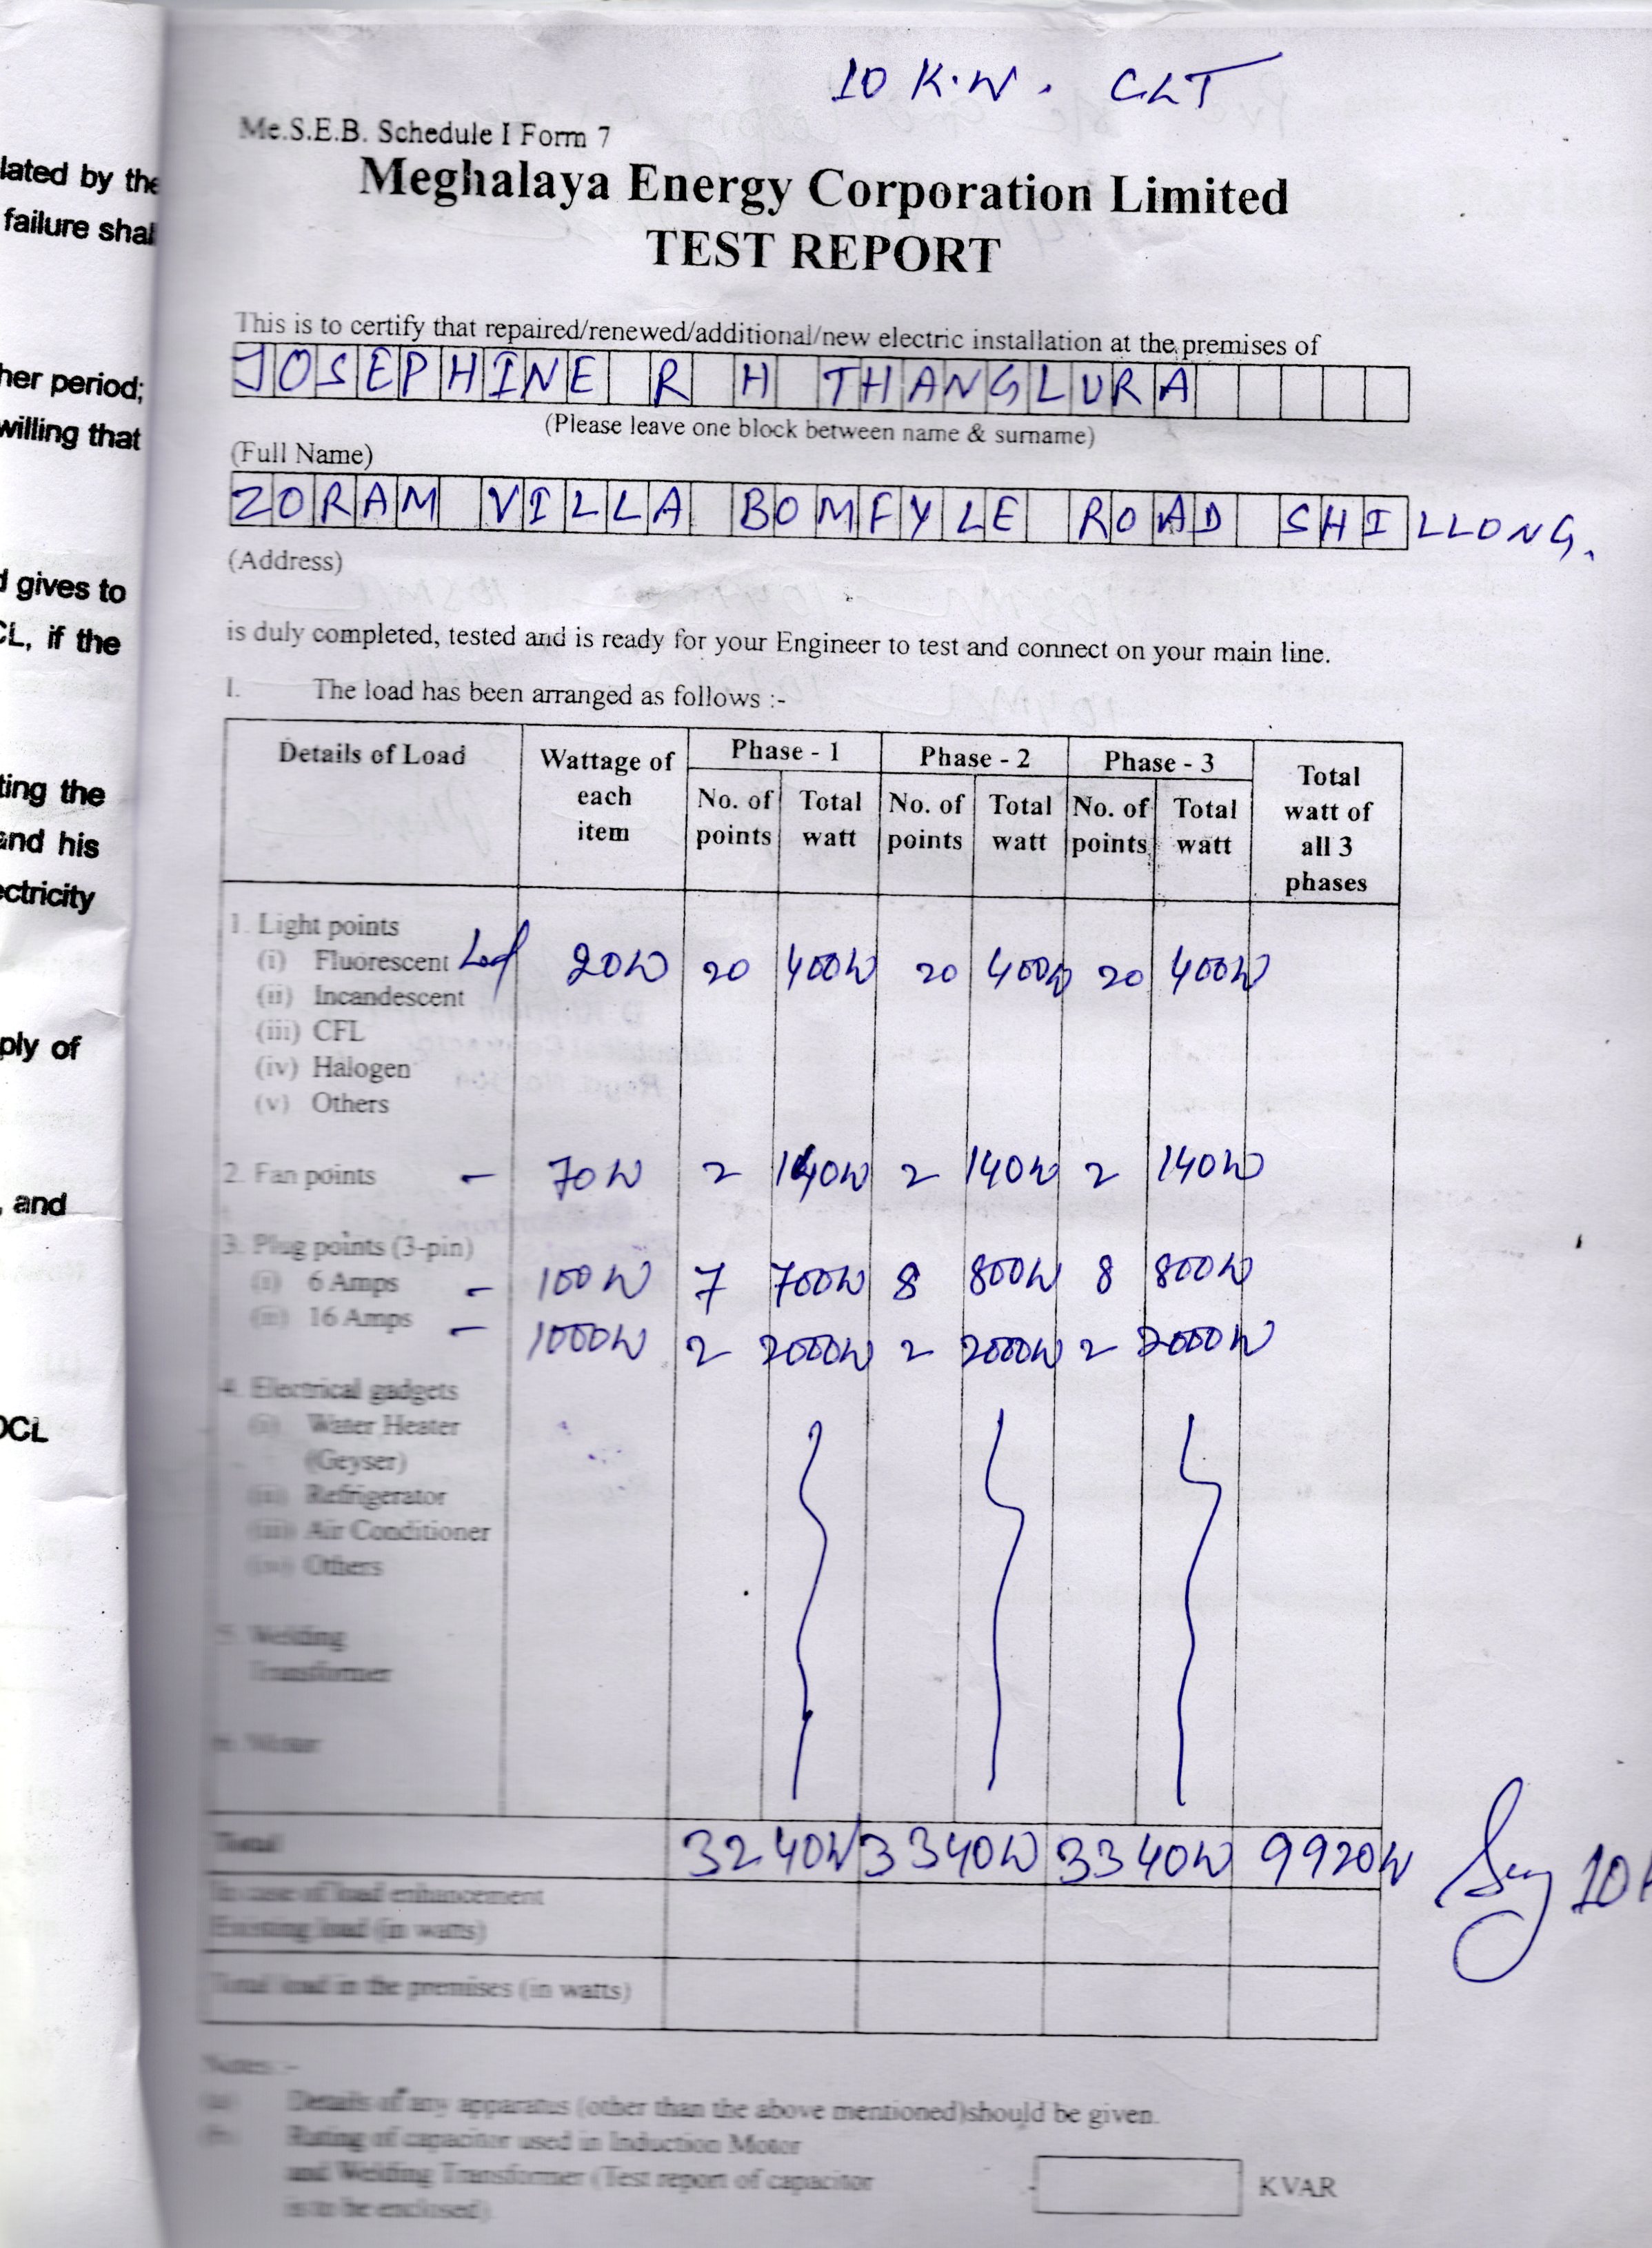 10 K.W. CLT
Me.S.E.B. Schedule I Form 7
Meghalaya Energy Corporation Limited
TEST REPORT
This is to certify that repaired/renewed/additional/new electric installation at the premises of
JOSEPHINE R H THANGLURA
(Please leave one block between name & surname)
(Full Name)
ZORAM VILLA BOMFYLE ROAD SHILLONG.
(Address)
is duly completed, tested and is ready for your Engineer to test and connect on your main line.
I. The load has been arranged as follows :-
Details of Load Wattage of each item Phase - 1 Phase - 2 Phase - 3 Total watt of all 3 phases
No. of points Total watt No. of points Total watt No. of points Total watt
1. Light points
(i) Fluorescent Led 20W 20 400W 20 400W 20 400W
(ii) Incandescent
(iii) CFL
(iv) Halogen
(v) Others
2. Fan points - 70W 2 140W 2 140W 2 140W
3. Plug points (3-pin)
(i) 6 Amps - 100W 7 700W 8 800W 8 800W
(ii) 16 Amps - 1000W 2 2000W 2 2000W 2 2000W
4. Electrical gadgets
(i) Water Heater
(Geyser)
(ii) Refrigerator
(iii) Air Conditioner
(iv) Others
5. Welding
Transformer
6. Motor
Total 3240W 3340W 3340W 9920W Say 10
In case of load enhancement
Existing load (in watts)
Total load in the premises (in watts)
Notes :-
(a) Details of any apparatus (other than the above mentioned)should be given.
(b) Rating of capacitor used in Induction Motor
and Welding Transformer (Test report of capacitor
is to be enclosed)
KVAR
lated by the
failure shal
her period;
willing that
d gives to
CL, if the
ting the
and his
ectricity
ply of
, and
OCL